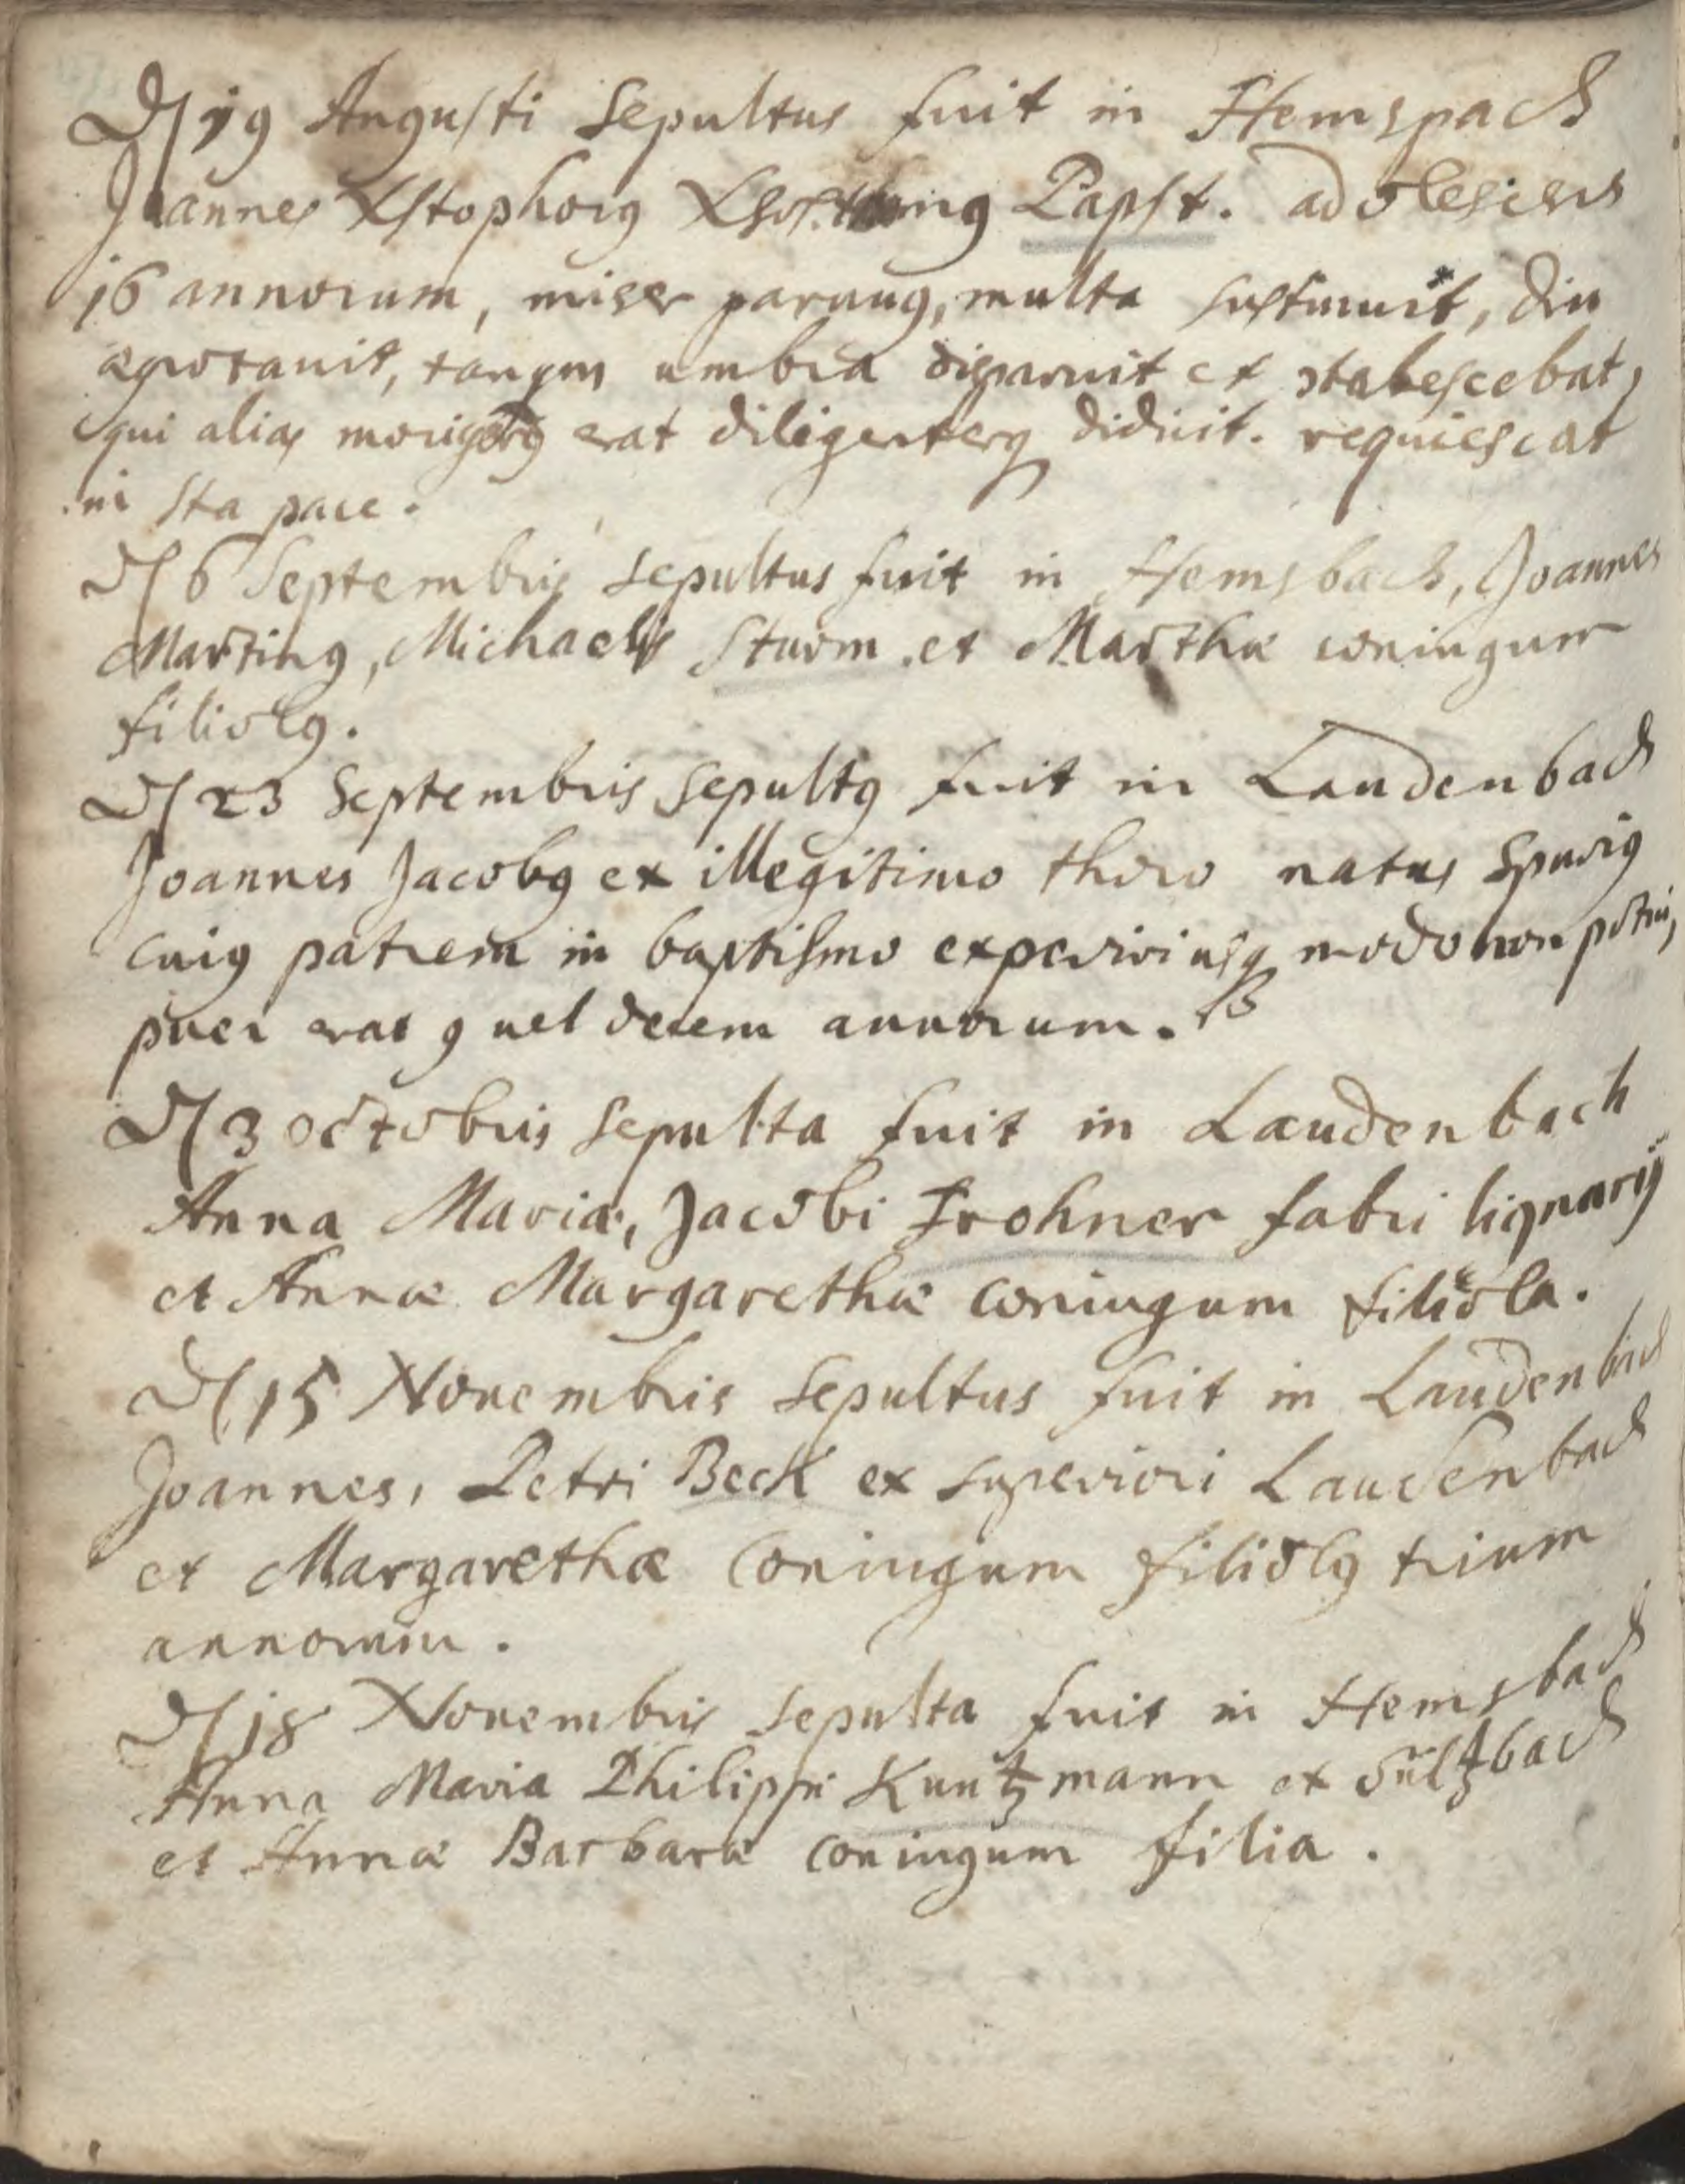 D 19 Augusti Sepultus fuit in Hemspach
Joannes Xstophorg Papst. adolescens
16 annorum, miser paruug, multa sustinuit, diu
ægrotauit, tanqm umbra disparuit et 9tabescebat,
qui alias morigerg erat diligenterq didicit. requiescat
in Sta pace.
D 6 Septembris Sepultus fuit in Hemsbach, Joannes
Marting, Michaelis Sturm et Marthæ coniugum
filiolg.
D 23 Septembris Sepultg fuit in Laudenbach
Joannes Jacobg ex illegitimo thoro natus Spurig
cuig patrem in baptismo experiri usq modo non potui,
puer erat 9 uel decem annorum.
D 3 octobris Sepulta fuit in Laudenbach
Anna Maria, Jacobi Frohner fabri lignarij
et Annæ Margarethæ coniugum filiola.
D 15 Nouembris Sepultus fuit in Laudenbach
Joannes, Petri Beck ex superiori Laudenbach
et Margarethæ Coniugum filiolg trium
annorum.
D 18 Nouembris Sepulta fuit in Hemsbach
Anna Maria Philippi Kuntzmann ex Sültzbach
et Annæ Barbaræ coniugum filia.